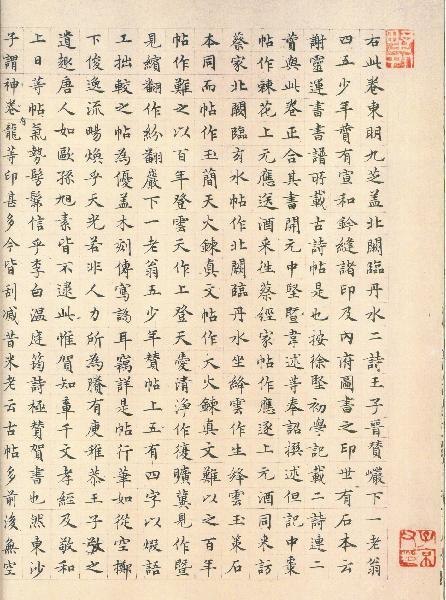 右此卷東明九芝蓋北闕臨丹水二詩王子晉贊巖下一老翁
四五少年贊有宣和鈐縫諸印及內府圖書之印世有石本云
謝靈運書書譜所載古詩帖是也按徐堅初學記載二詩連二
贊與此卷正合其書開元中堅暨韋述等奉詔撰述但記中棗
帖作棘花上元應送酒來往蔡經家帖作應逐上元酒同來訪
蔡家北闕臨玄水帖作北闕臨丹水坐絳雲作生絳雲玉策石
本同而帖作玉簡天火鍊真文帖作大火鍊真文難以之百年
帖作難之以百年登雲天作上登天愛清淨作復曠冀見作暨
見繽翻作紛翻巖下一老翁五少年贊帖上五有四字以煅語
工拙較之帖為優蓋木刻傳寫譌耳竊詳是帖行筆如從空擲
下俊逸流暢煥乎天光若非人力所為勝有庾稚恭王子敬之
遺趣唐人如歐孫旭素皆不逮此惟賀知章千文孝經及敬和
上日等帖氣勢髣髴信乎李白溫庭筠詩極贊賀書也然東沙
子謂卷有神龍等印甚多今皆刮滅昔米老云古帖多前後無空